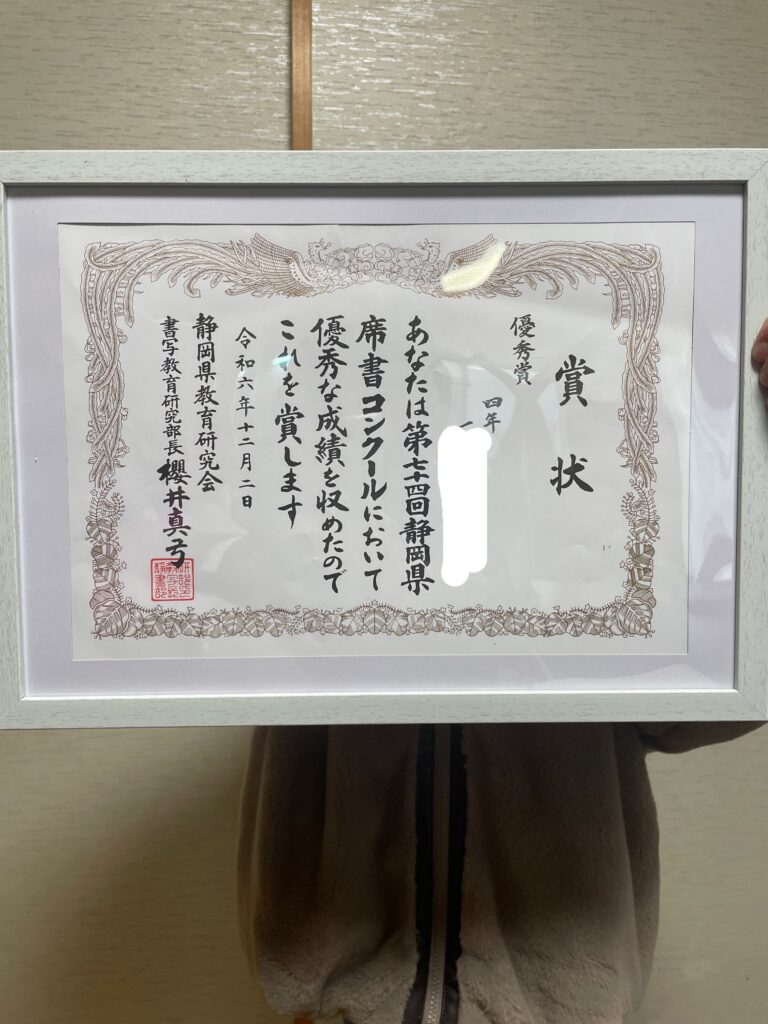 賞状
優秀賞
四年
あなたは第七十四回静岡県
席書コンクールにおいて
優秀な成績を収めたので
これを賞します
令和六年十二月二日
静岡県教育研究会
書写教育研究部長 櫻井真弓